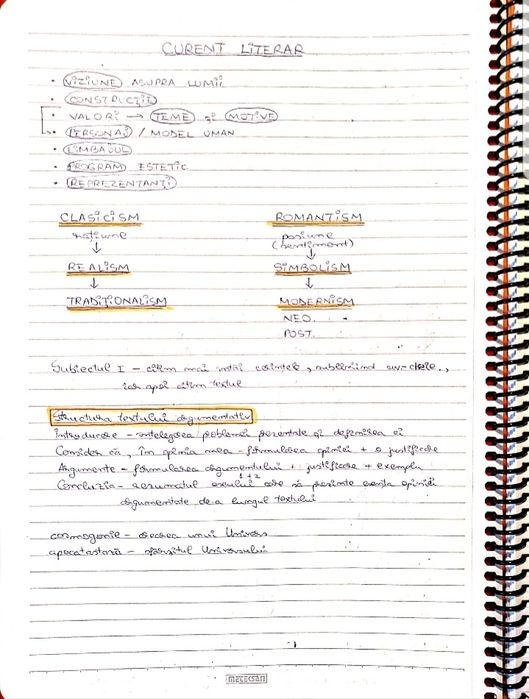 CURENT LITERAR
• VIZIUNE ASUPRA LUMII
• CONSTRUCȚIE
• VALORI → TEME și MOTIVE
• PERSONAJ / MODEL UMAN
• LIMBAJUL
• PROGRAM ESTETIC
• REPREZENTANȚI
CLASICISM
rațiune
↓
REALISM
↓
TRADIȚIONALISM
ROMANTISM
pasiune
(sentiment)
↓
SIMBOLISM
↓
MODERNISM
NEO.
POST.
Subiectul I - citim mai întâi cerințele, subliniind cuv-cheie.,
iar apoi citim textul
Structura textului argumentativ
Introducere - înțelegerea problemei prezentate și definirea ei
Consider că, în opinia mea - formularea opiniei + o justificare
Argumente - formularea argumentului + justificare + exemplu
1,2
Concluzia - rezumatul eseului care să prezinte esența opiniei
argumentate de-a lungul textului
cosmogonie - crearea unui Univers
apocatastază - sfârșitul Universului